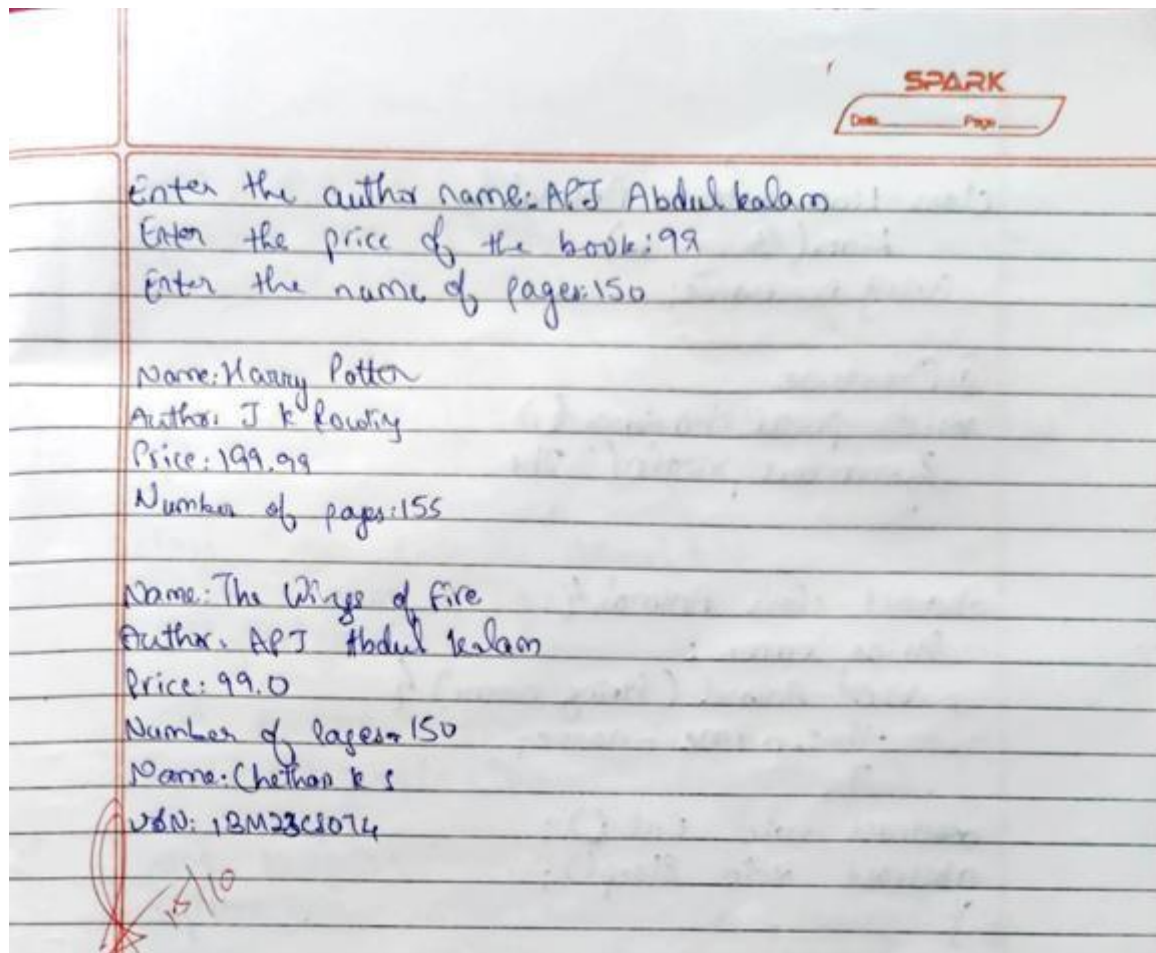 SPARK
Date Page
Enter the author name: APJ Abdul kalam
Enter the price of the book: 99
Enter the name of pages: 150
Name: Harry Potter
Author: J K Rowling
Price: 199.99
Number of pages: 155
Name: The Wings of Fire
Author: APJ Abdul kalam
Price: 99.0
Number of Pages: 150
Name: Chethan K S
USN: 1BM23CS074
15/10